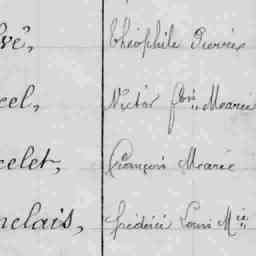 vé, Théophile Pierre
cel, Victor fois Marie
celet, François Marie
nclais, Frédéric Louis Mie